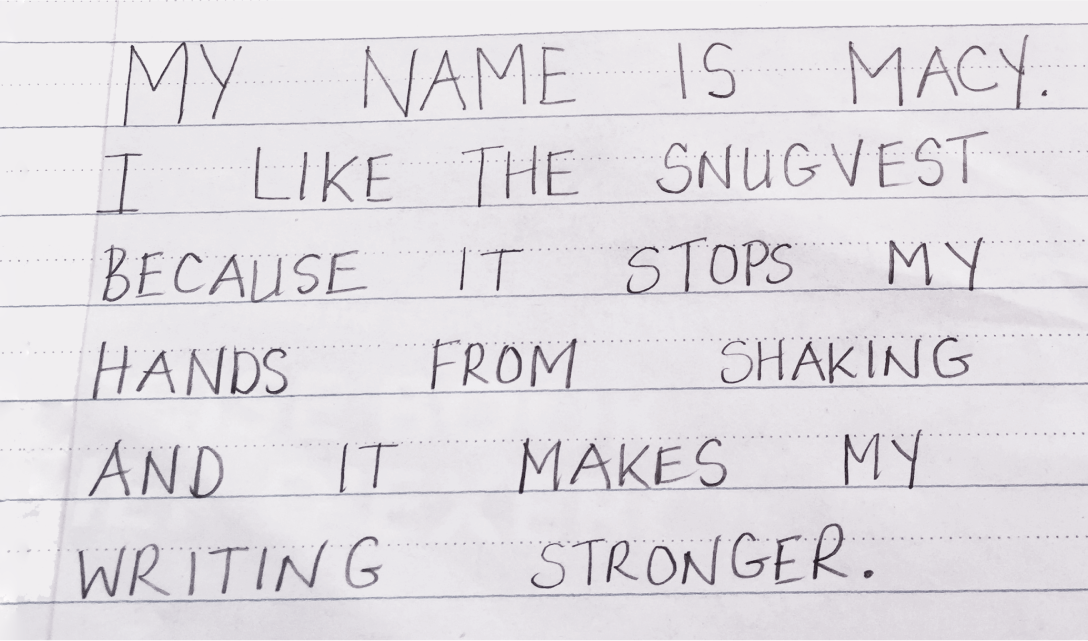 MY NAME IS MACY.
I LIKE THE SNUGVEST
BECAUSE IT STOPS MY
HANDS FROM SHAKING
AND IT MAKES MY
WRITING STRONGER.